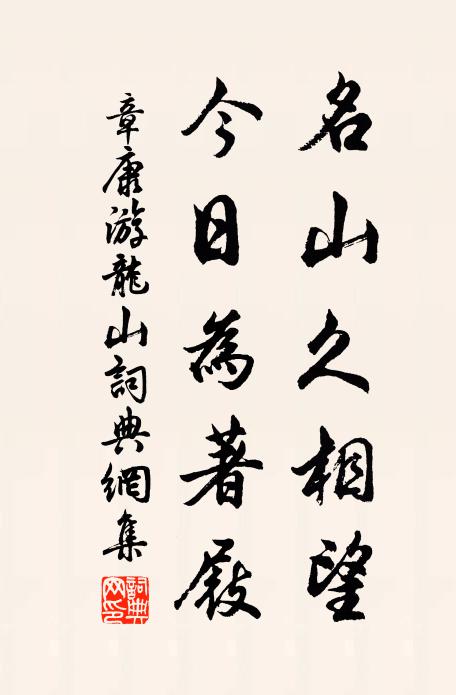 名山久相望
今日為著屐
章康游龍山詞典網集
詞典网印